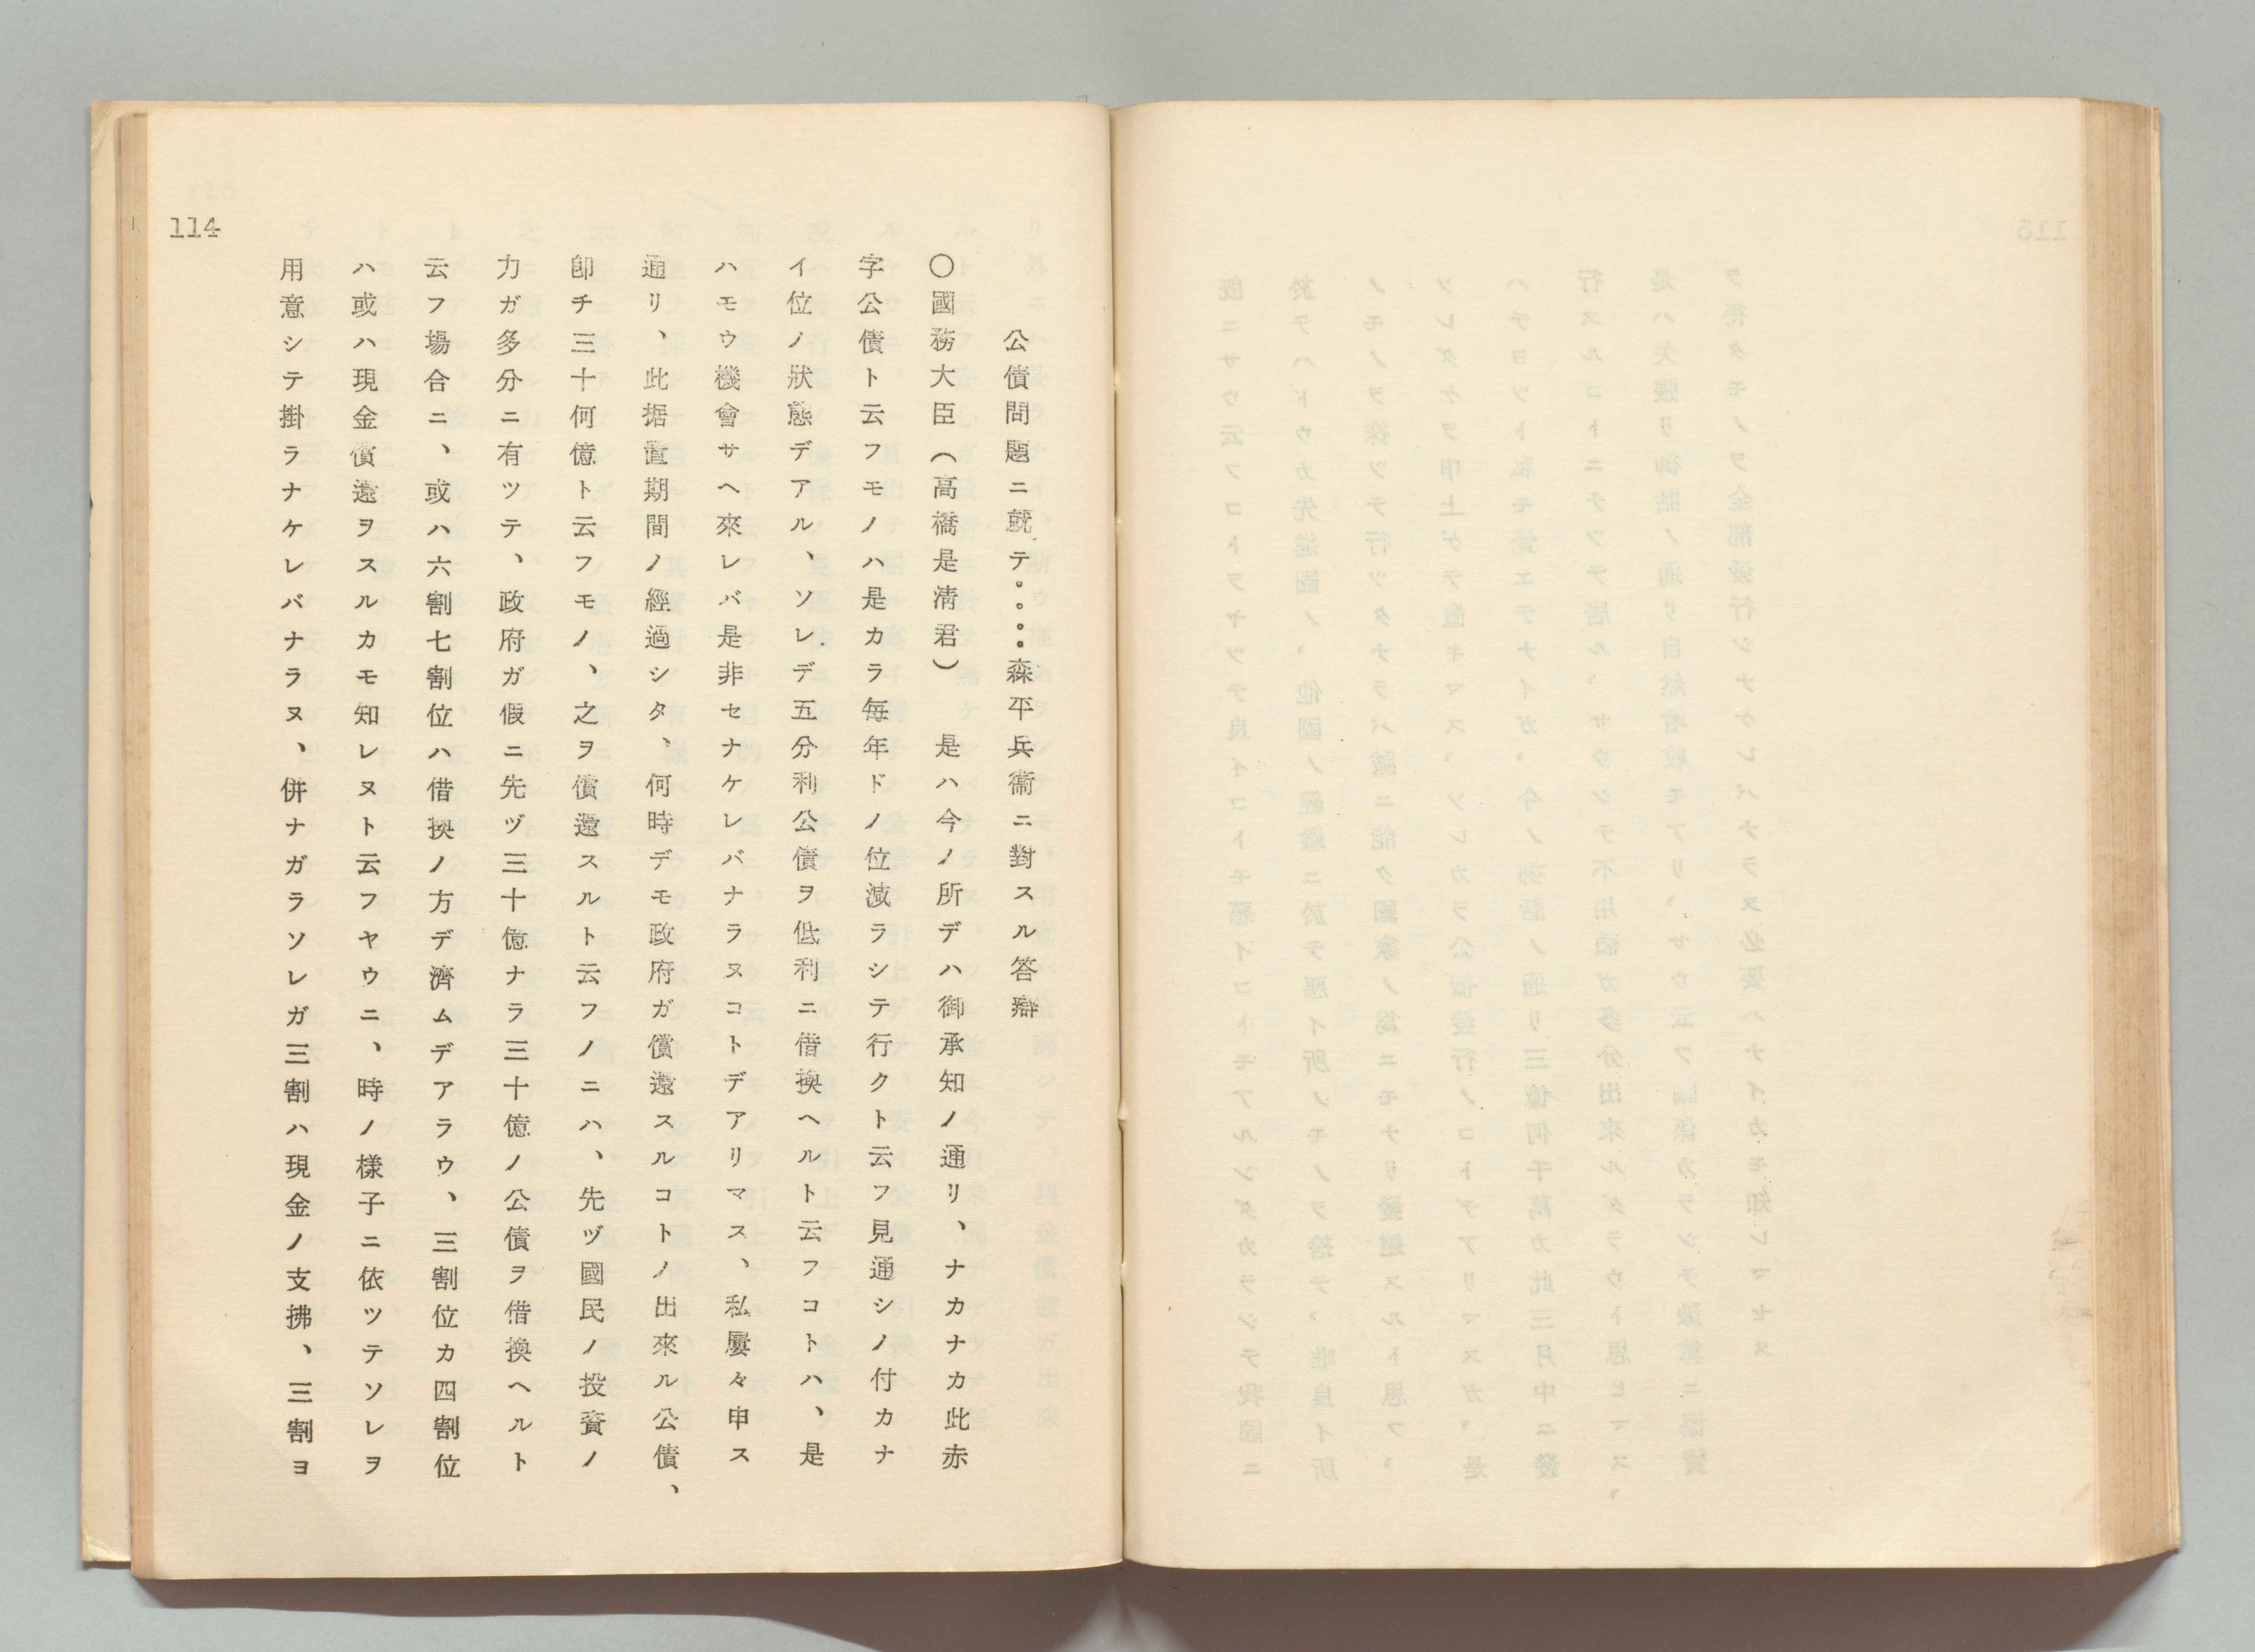 公債問題ニ就テ。。。。森平兵衞ニ對スル答辯
〇國務大臣（高橋是清君）　是ハ今ノ所デハ御承知ノ通リ、ナカナカ此赤
字公債ト云フモノハ是カラ毎年ドノ位減ラシテ行クト云フ見通シノ付カナ
イ位ノ狀態デアル、ソレデ五分利公債ヲ低利ニ借換ヘルト云フコトハ、是
ハモウ機會サヘ來レバ是非セナケレバナラヌコトデアリマス、私屢々申ス
通リ、此据置期間ノ經過シタ、何時デモ政府ガ償還スルコトノ出來ル公債、
卽チ三十何億ト云フモノ、之ヲ償還スルト云フノニハ、先ヅ國民ノ投資ノ
力ガ多分ニ有ツテ、政府ガ假ニ先ヅ三十億ナラ三十億ノ公債ヲ借換ヘルト
云フ場合ニ、或ハ六割七割位ハ借換ノ方デ濟ムデアラウ、三割位カ四割位
ハ或ハ現金償還ヲスルカモ知レヌト云フヤウニ、時ノ樣子ニ依ツテソレヲ
用意シテ掛ラナケレバナラヌ、併ナガラソレガ三割ハ現金ノ支拂、三割ヨ
114